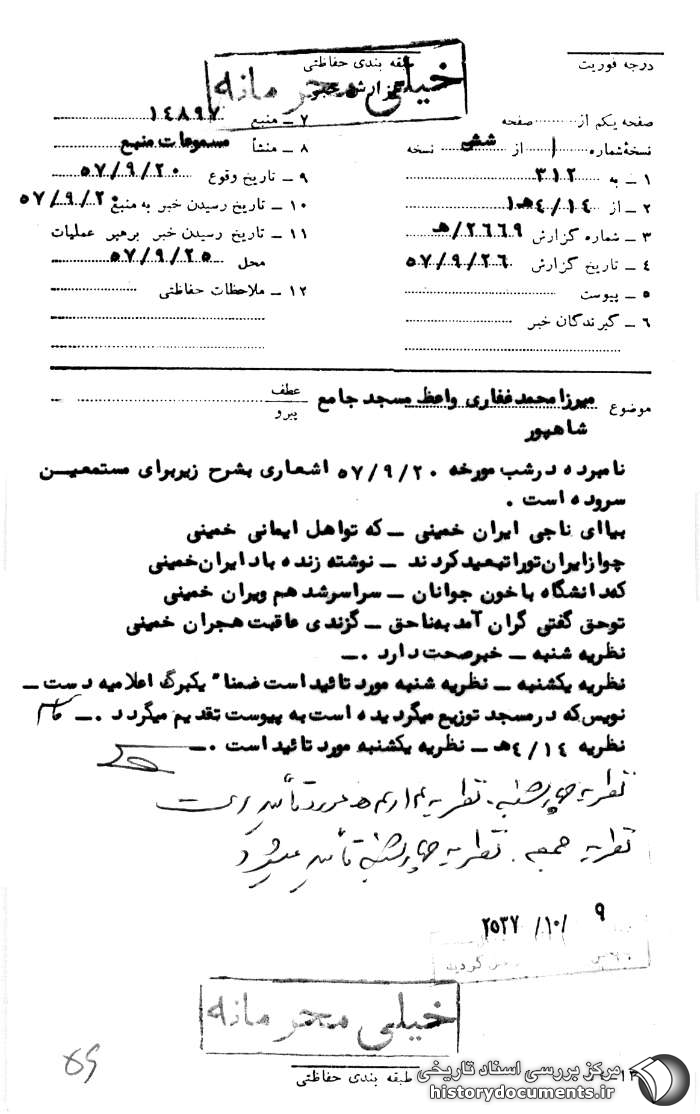 درجه فوریت
طبقه بندی حفاظتی
خیلی محرمانه
گزارش خبر
صفحه یکم از صفحه
نسخه شماره ۱ از شش نسخه
۱ ـ به ۳۱۲
۲ ـ از ۴/۱۴هـ۱
۳ ـ شماره گزارش ۲۶۶۹/هـ
۴ ـ تاریخ گزارش ۵۷/۹/۲۶
۵ ـ پیوست
۶ ـ گیرندگان خبر
۷ ـ منبع ۱۴۸۹۷
۸ ـ منشأ مسموعات منبع
۹ ـ تاریخ وقوع ۵۷/۹/۲۰
۱۰ ـ تاریخ رسیدن خبر به منبع ۵۷/۹/۲۰
۱۱ ـ تاریخ رسیدن خبر برهبر عملیات
محل ۵۷/۹/۲۵
۱۲ ـ ملاحظات حفاظتی
موضوع میرزا محمد غفاری واعظ مسجد جامع
شاهپور
عطف
پیرو
نامبرده در شب مورخه ۵۷/۹/۲۰ اشعاری بشرح زیر برای مستمعین
سروده است .
بیا ای ناجی ایران خمینی ـ که تو اهل ایمانی خمینی
چو از ایران تورا تبعید کردند ـ نوشته زنده باد ایران خمینی
که دانشگاه با خون جوانان ـ سراسر شد هم ویران خمینی
تو حق گفتی گران آمد به ناحق ـ گزندی عاقبت هجران خمینی
نظریه شنبه ـ خبر صحت دارد .ـ
نظریه یکشنبه ـ نظریه شنبه مورد تائید است ضمنا" یکبرگ اعلامیه دست ـ
نویس که در مسجد توزیع میگردیده است به پیوست تقدیم میگردد .ـ
نظریه ۴/۱۴هـ ـ نظریه یکشنبه مورد تائید است .ـ
نظریه چهارشنبه. نظریه ۴ ارم ۵ هـ مورد تأیید است
نظریه جمعه. نظریه چهارشنبه تأیید میشود
۹ /۱۰/ ۲۵۳۷
گردید
خیلی محرمانه
طبقه بندی حفاظتی
۵۶
مرکز بررسی اسناد تاریخی
historydocuments.ir